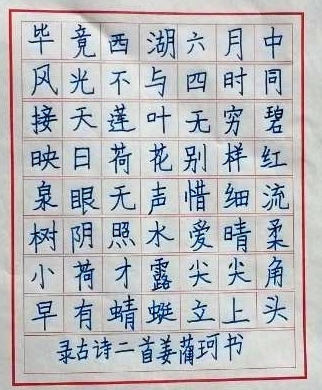 毕竟西湖六月中
风光不与四时同
接天莲叶无穷碧
映日荷花别样红
泉眼无声惜细流
树阴照水爱晴柔
小荷才露尖尖角
早有蜻蜓立上头
录古诗二首姜蔺珂书